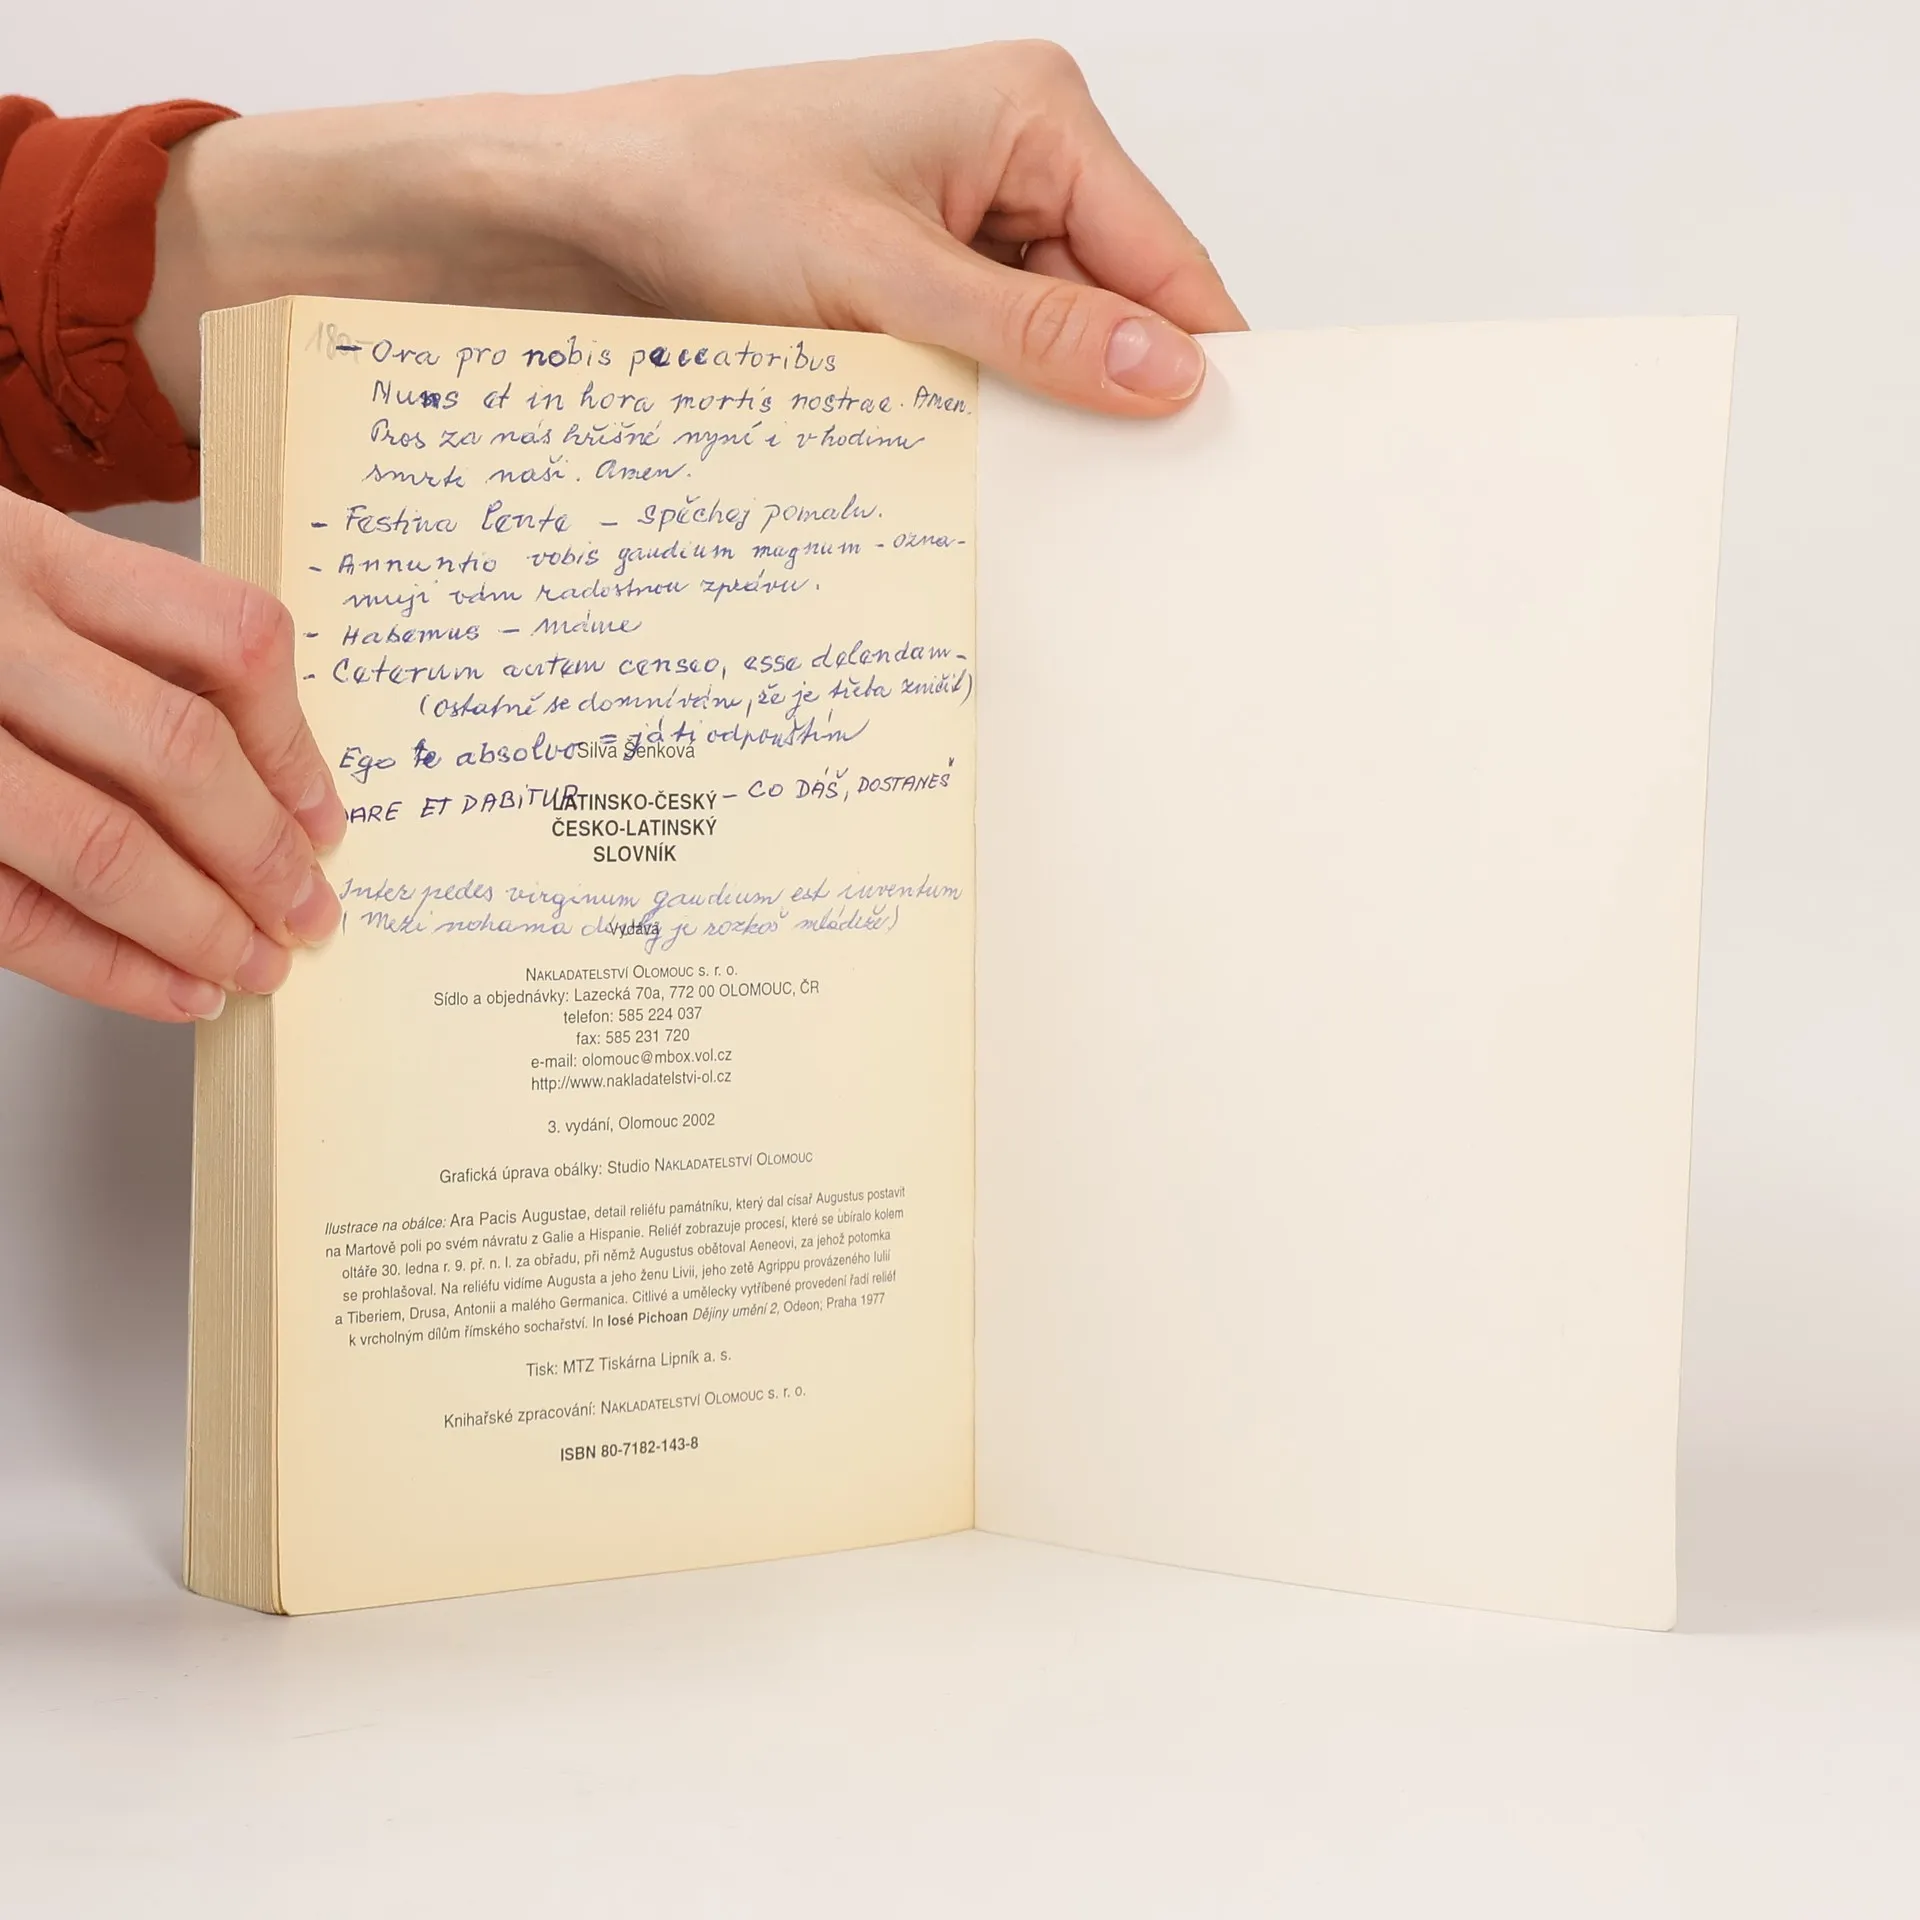 180,-
- Ora pro nobis peccatoribus
Nuns et in hora mortis nostrae. Amen.
Pros za nás hříšné nyní i v hodinu
smrti naší. Amen.
- Festina lente - spěchej pomalu.
- Annuntio vobis gaudium magnum - ozna-
muji vám radostnou zprávu.
- Habemus - máme
- Ceterum autem censeo, esse delendam -
(ostatně se domnívám, že je třeba zničit)
Ego te absolvo = já ti odpouštím
Silva Šenková
DARE ET DABITUR - CO DÁŠ, DOSTANEŠ
LATINSKO-ČESKÝ
ČESKO-LATINSKÝ
SLOVNÍK
Inter pedes virginum gaudium est iuventum
(Mezi nohama dívky je rozkoš mládeže)
Vydává
NAKLADATELSTVÍ OLOMOUC s. r. o.
Sídlo a objednávky: Lazecká 70a, 772 00 OLOMOUC, ČR
telefon: 585 224 037
fax: 585 231 720
e-mail: olomouc@mbox.vol.cz
http://www.nakladatelstvi-ol.cz
3. vydání, Olomouc 2002
Grafická úprava obálky: Studio NAKLADATELSTVÍ OLOMOUC
Ilustrace na obálce: Ara Pacis Augustae, detail reliéfu památníku, který dal císař Augustus postavit
na Martově poli po svém návratu z Galie a Hispanie. Reliéf zobrazuje procesí, které se ubíralo kolem
oltáře 30. ledna r. 9. př. n. l. za obřadu, při němž Augustus obětoval Aeneovi, za jehož potomka
se prohlašoval. Na reliéfu vidíme Augusta a jeho ženu Livii, jeho zetě Agrippu provázeného Iulií
a Tiberiem, Drusa, Antonii a malého Germanica. Citlivé a umělecky vytříbené provedení řadí reliéf
k vrcholným dílům římského sochařství. In Iosé Pichoan Dějiny umění 2, Odeon; Praha 1977
Tisk: MTZ Tiskárna Lipník a. s.
Knihařské zpracování: NAKLADATELSTVÍ OLOMOUC s. r. o.
ISBN 80-7182-143-8